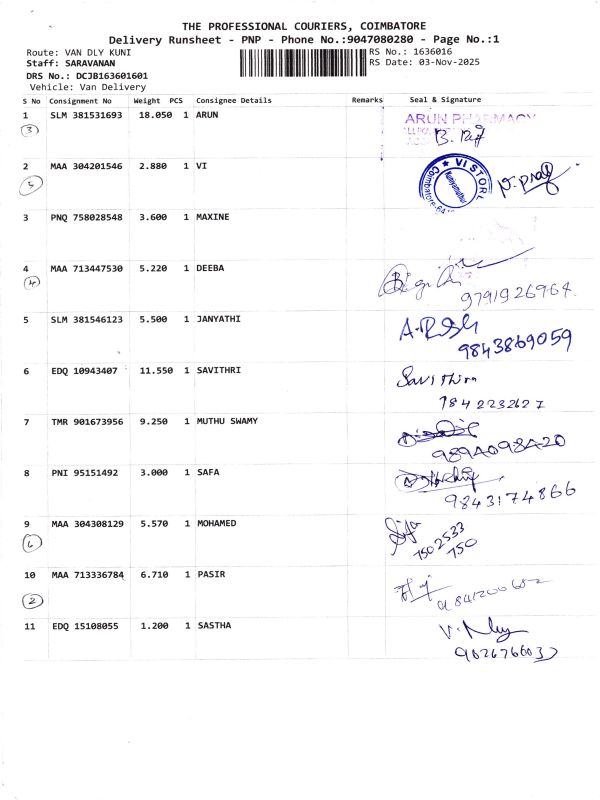 THE PROFESSIONAL COURIERS, COIMBATORE
Delivery Runsheet - PNP - Phone No.:9047080280 - Page No.:1
Route: VAN DLY KUNI RS No.: 1636016
Staff: SARAVANAN RS Date: 03-Nov-2025
DRS No.: DCJB163601601
Vehicle: Van Delivery
S No Consignment No Weight PCS Consignee Details Remarks Seal & Signature
1 SLM 381531693 18.050 1 ARUN ARUN PHARMACY
3
2 MAA 304201546 2.880 1 VI VI STORE Coimbatore Kuniyamuthur
5
3 PNQ 758028548 3.600 1 MAXINE
4 MAA 713447530 5.220 1 DEEBA
4 9791926964
5 SLM 381546123 5.500 1 JANYATHI
9843869059
6 EDQ 10943407 11.550 1 SAVITHRI
7842232627
7 TMR 901673956 9.250 1 MUTHU SWAMY
9894098420
8 PNI 95151492 3.000 1 SAFA
9843174866
9 MAA 304308129 5.570 1 MOHAMED
6 7502533
750
10 MAA 713336784 6.710 1 PASIR
2
11 EDQ 15108055 1.200 1 SASTHA